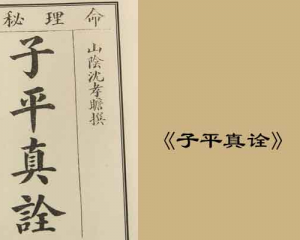 命理秘
山陰沈孝瞻撰
子平真詮
《子平真诠》